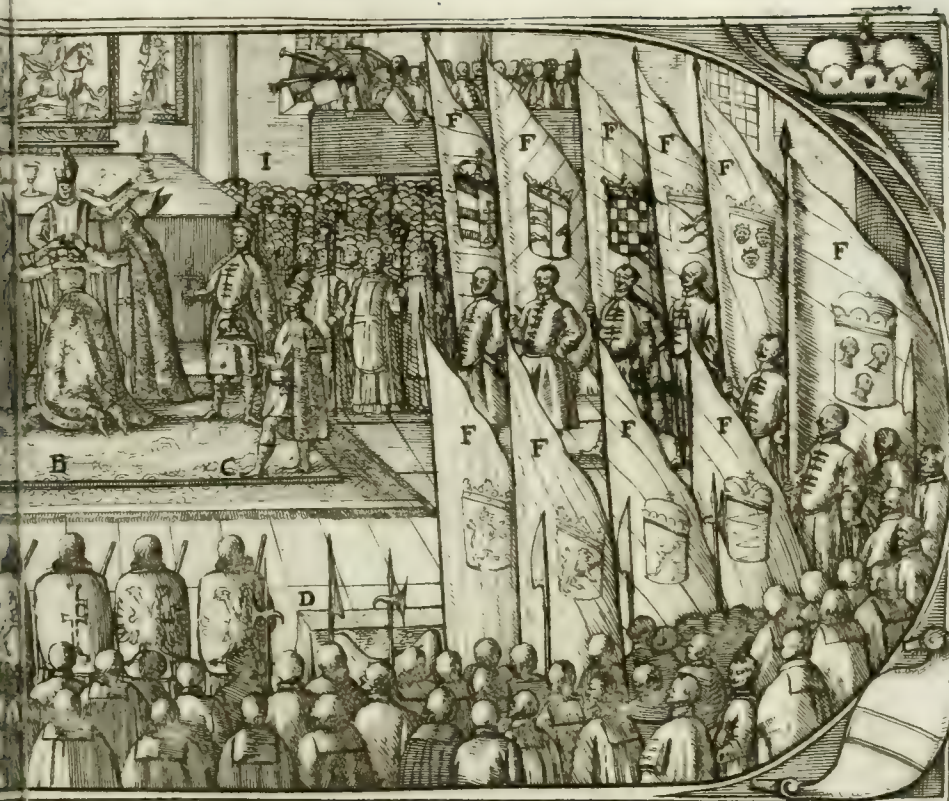 F
F
F
F
F
I
F
F
F
F
F
B
C
D